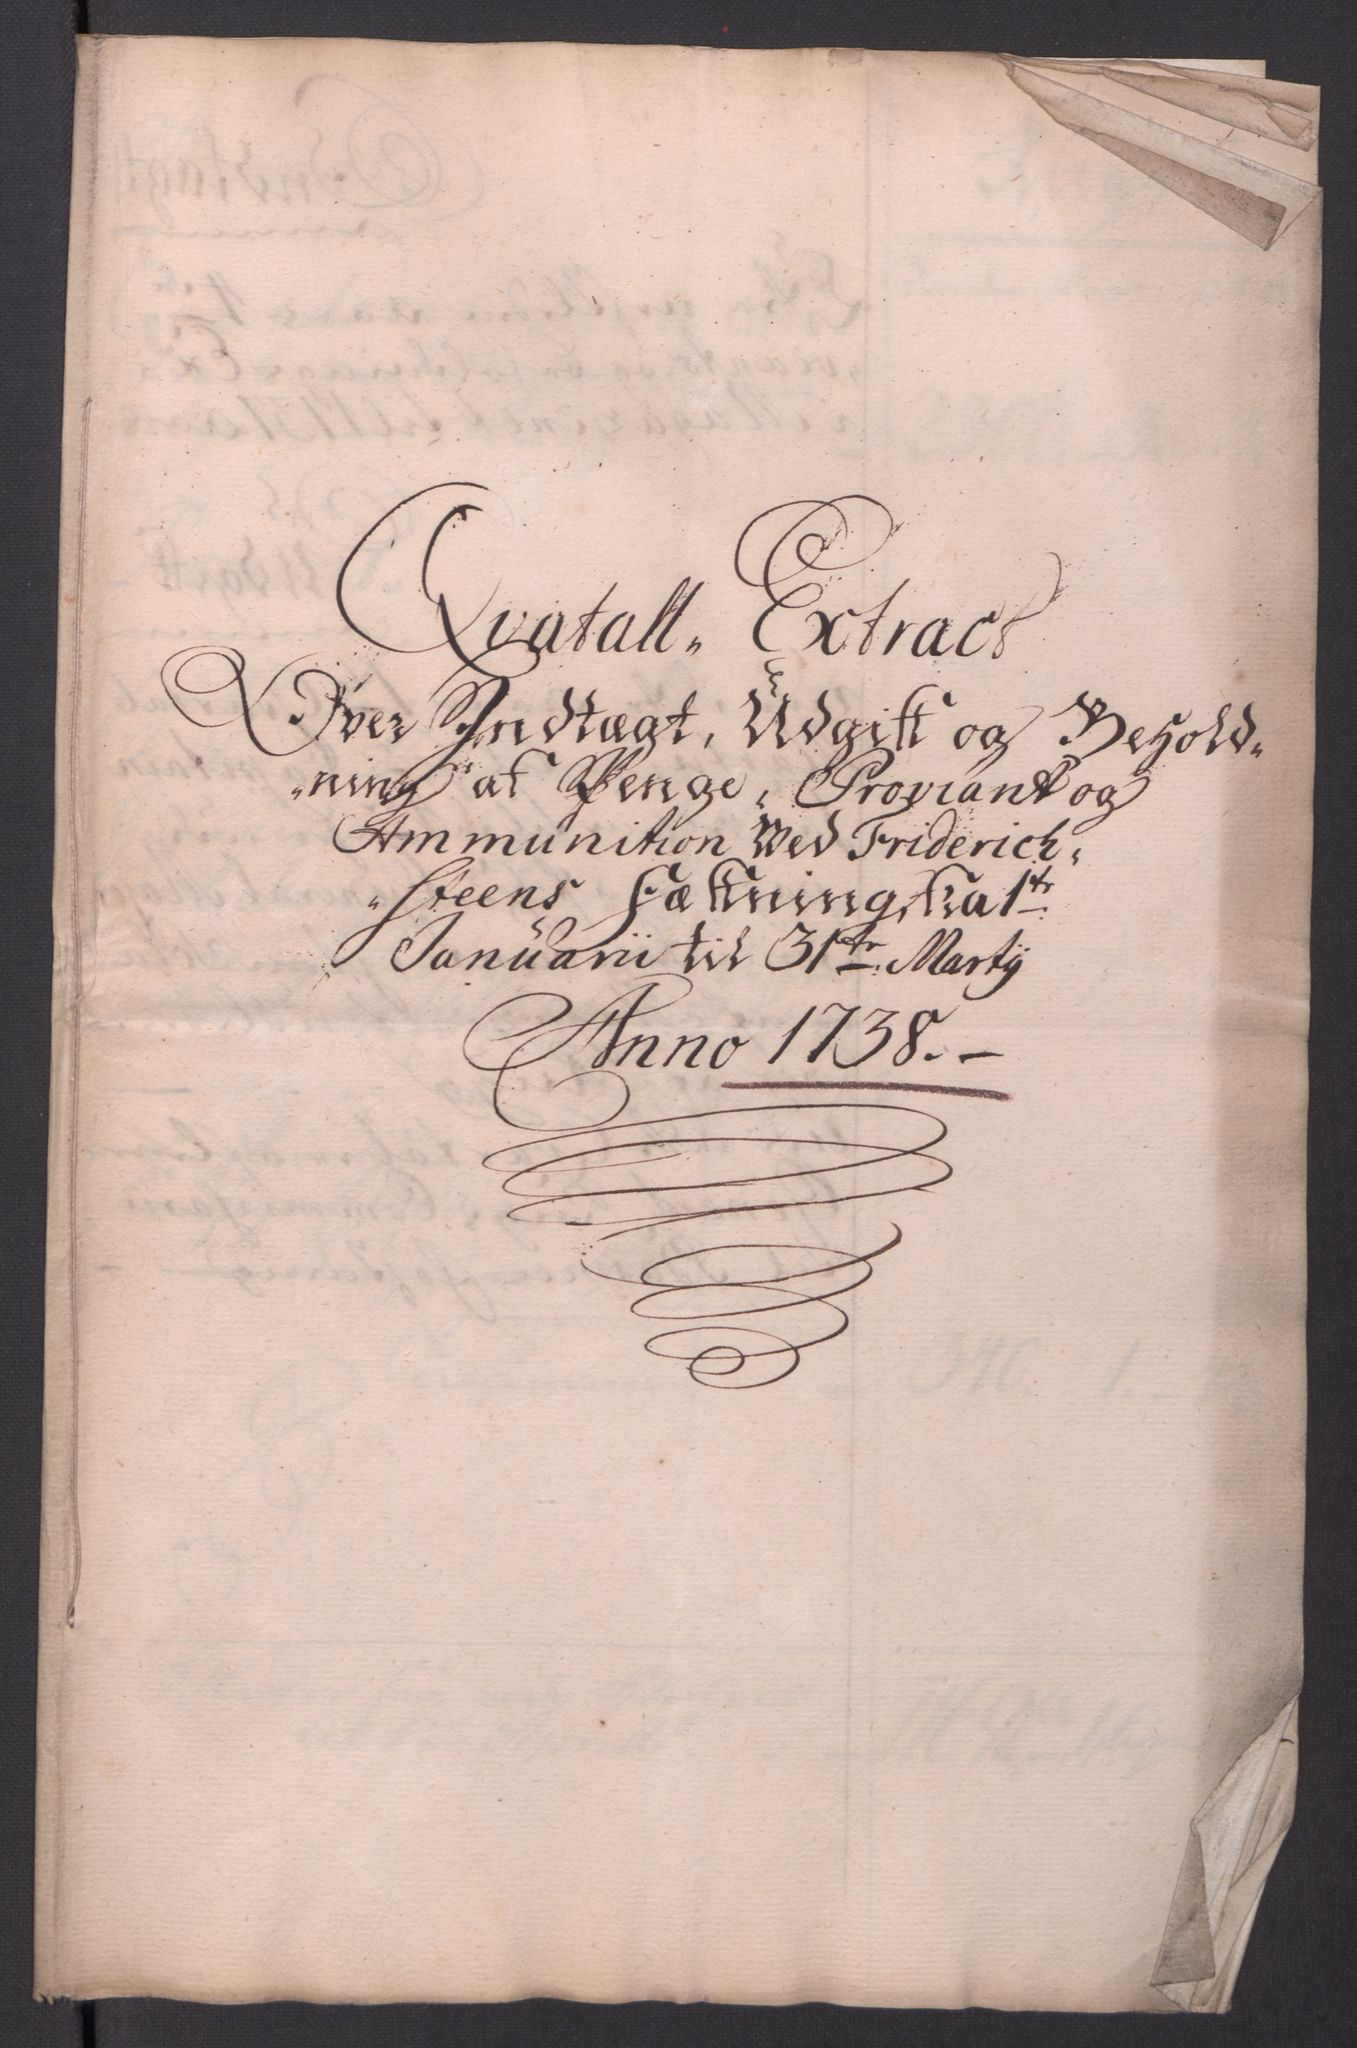 Qvatall„ Extract
Over Indtægt, Udgift og Behold„
„ning af Penge, Proviant og
Ammunition Ved Friderich„
„steens Fæstning, fra 1ste
Januarii til 31te Martÿ
Anno 1738. –